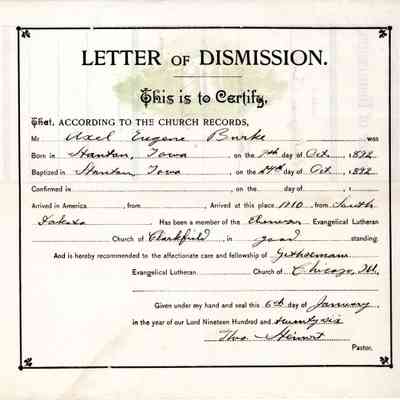 LETTER OF DISMISSION.
This is to Certify,
That, ACCORDING TO THE CHURCH RECORDS,
Mr Axel Eugene Burke was
Born in Stanton, Iowa, on the 7th day of Oct. 1892
Baptized in Stanton Iowa, on the 24th day of Oct. 1892
Confirmed in, on the day of, 1
Arrived in America, from, Arrived at this place 1910 from South
Dakota Has been a member of the Evangelical Lutheran
Church of Clarkfield, in good standing.
And is hereby recommended to the affectionate care and fellowship of Gethsemane
Evangelical Lutheran Church of Chicago, Ill.
Given under my hand and seal this 6th day of January,
in the year of our Lord Nineteen Hundred and twentysix
Theo.
Pastor.